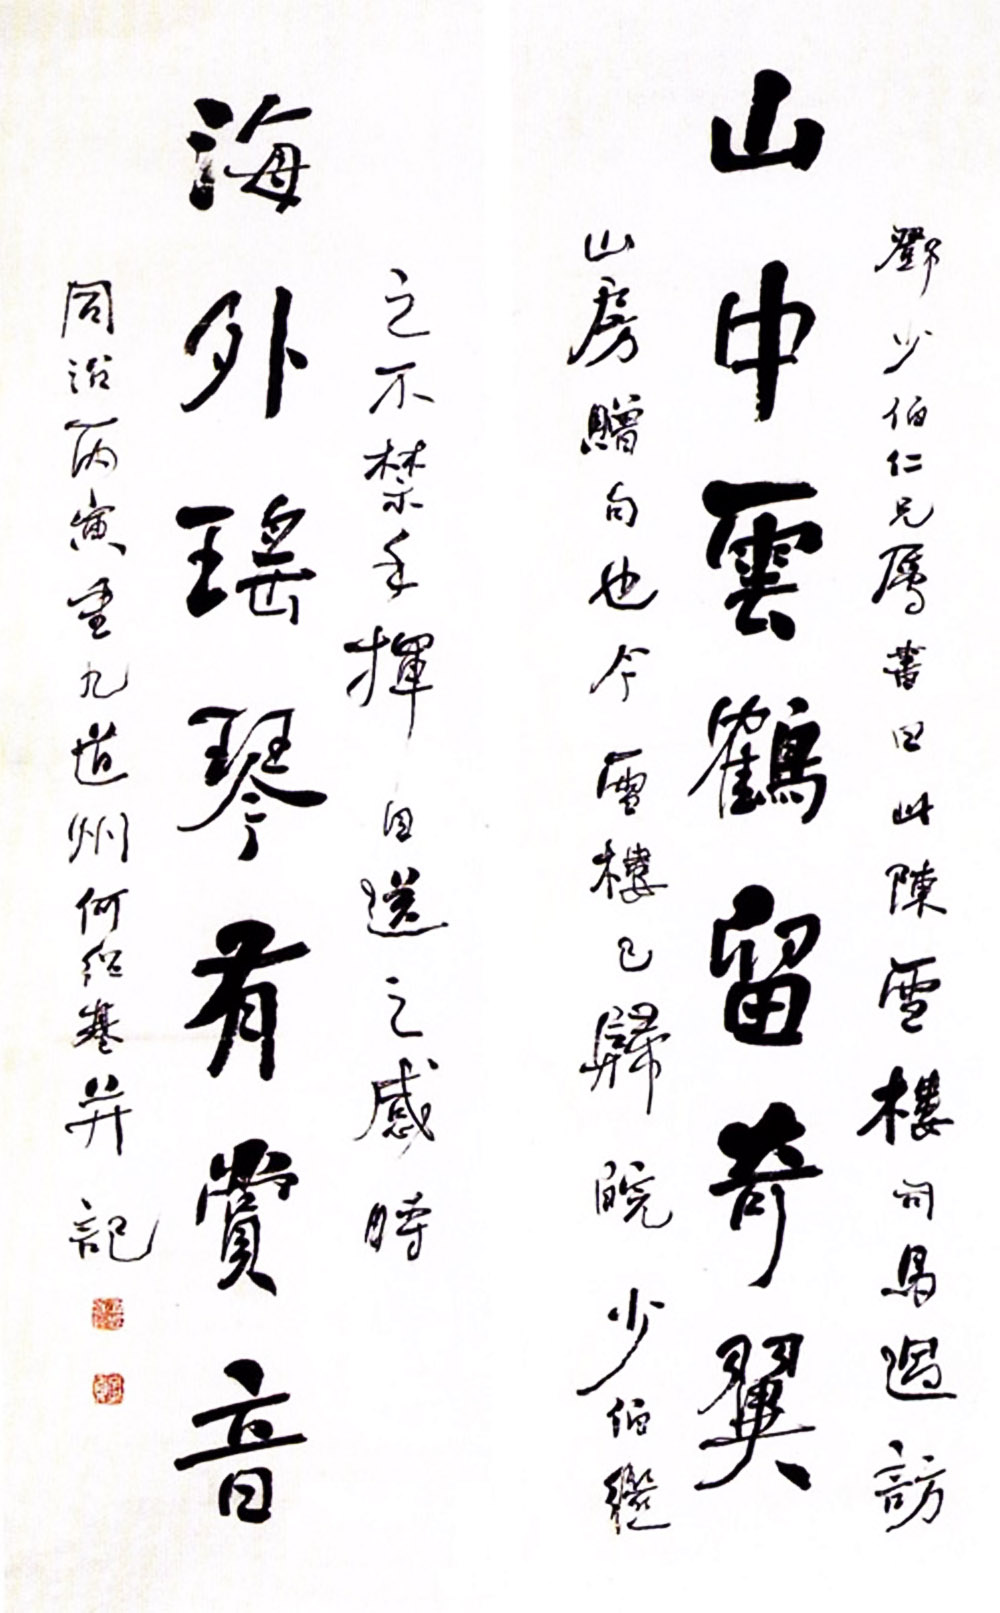 鄧少伯仁兄屬書曰此陳雪樓司馬過訪
山中雲鶴留奇翼
山房贈句也今雪樓已歸皖少伯繼
之不禁手揮目送之感時
海外瑤琴有賞音
同治丙寅重九道州何紹基并記